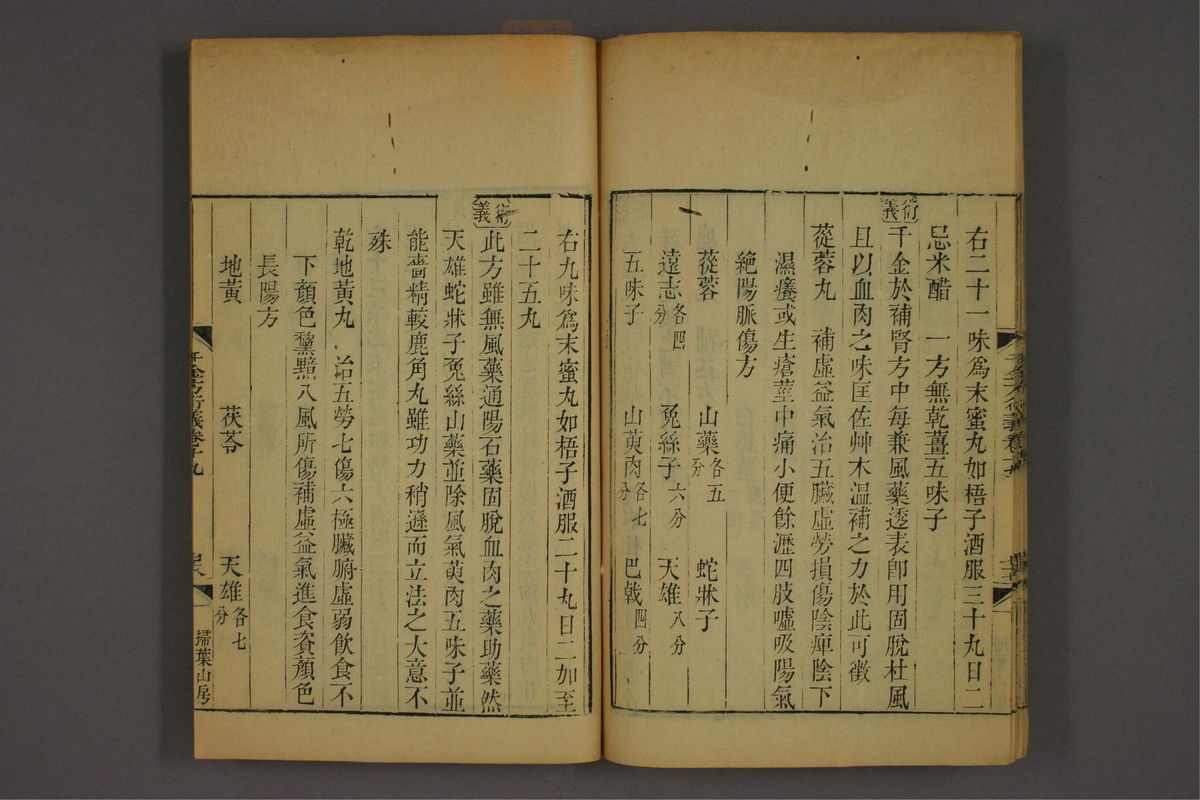 右二十一味為末蜜丸如梧子酒服三十丸日二
忌米醋　一方無乾薑五味子
衍義
千金於補腎方中每兼風藥透表卽用固脫杜風
且以血肉之味匡佐艸木温補之力於此可徵
蓯蓉丸　補虛益氣治五臟虛勞損傷陰痺陰下
濕癢或生瘡莖中痛小便餘瀝四肢噓吸陽氣
絶陽脈傷方
蓯蓉　山藥各五分　蛇牀子
遠志各四分　菟絲子六分　天雄八分
五味子　山萸肉各七分　巴戟四分
右九味為末蜜丸如梧子酒服二十丸日二加至
二十五丸
衍義
此方雖無風藥通陽石藥固脫血肉之藥助藥然
天雄蛇牀子菟絲山藥並除風氣萸肉五味子並
能嗇精較鹿角丸雖功力稍遜而立法之大意不
殊
乾地黃丸　治五勞七傷六極臟腑虛弱飲食不
下顏色黧黯八風所傷補虛益氣進食資顏色
長陽方
地黃　茯苓　天雄各七分
千金方衍義卷十九
掃葉山房